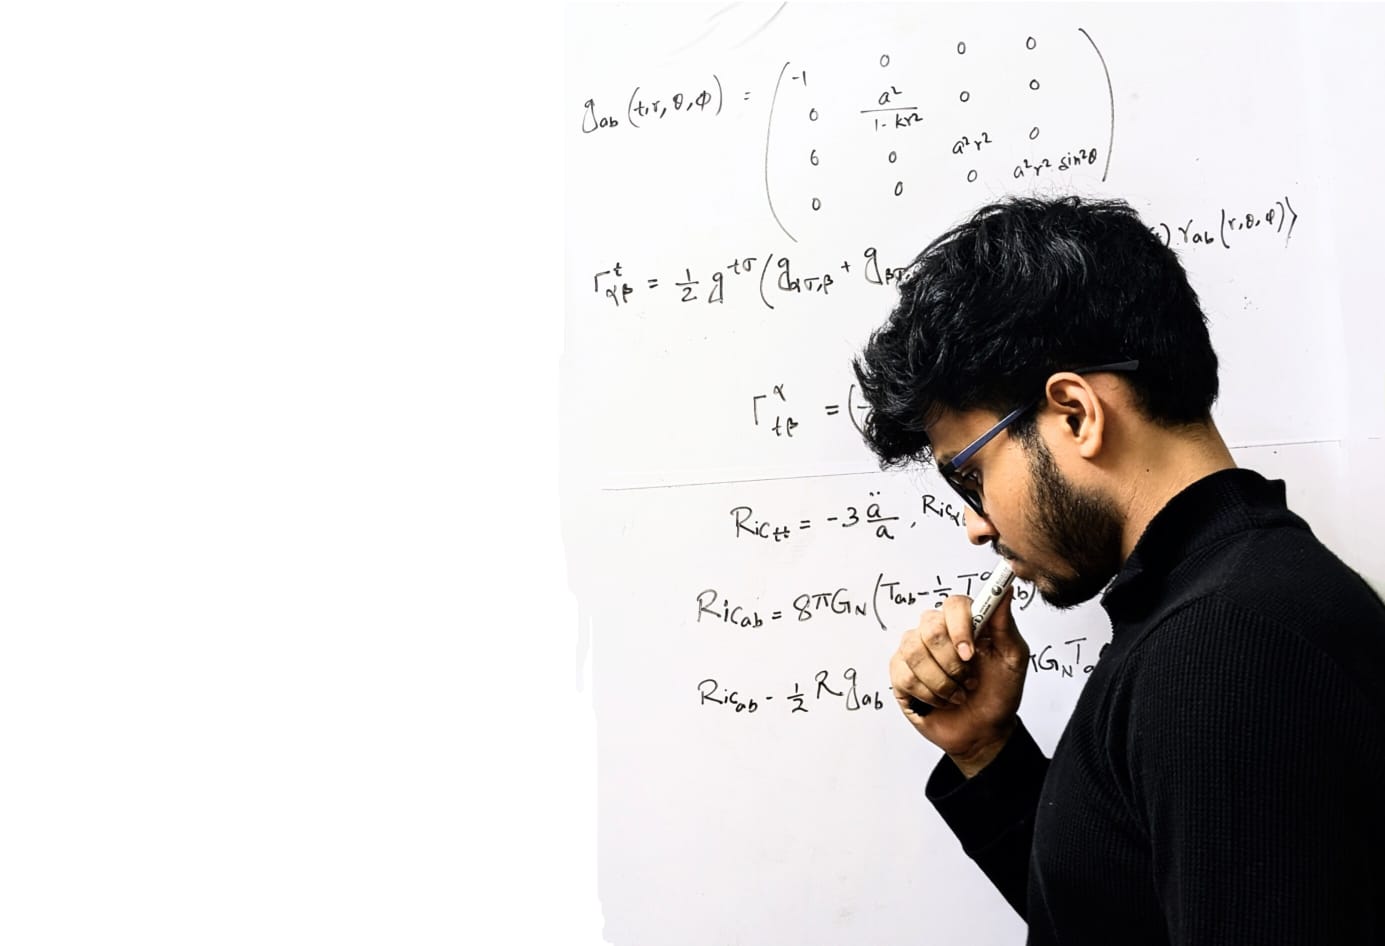 g_ab (t,r, θ, φ) = ( -1 0 0 0
0 a²/(1 - kr²) 0 0
6 0 a²r² 0
0 0 0 a²r² sin²θ )
) γ_ab (r, θ, φ)⟩
Γ^t_αβ = 1/2 g^tσ (g_ασ,β + g_βσ,
Γ^α_tβ = (
Ric_tt = -3 ä/a , Ric_α
Ric_ab = 8πG_N (T_ab - 1/2 T b)
Ric_ab - 1/2 R g_ab πG_N T_a